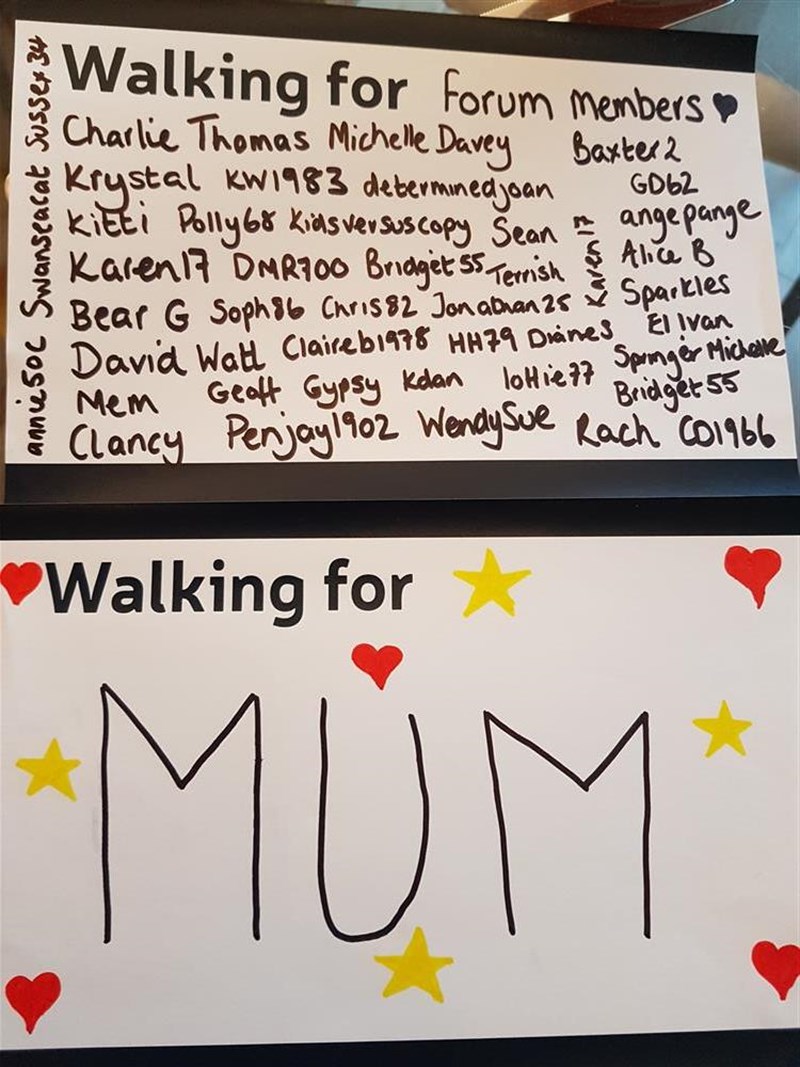 Walking for forum members
Charlie Thomas Michelle Davey Baxter2
Krystal KW1983 determinedjoan GD62
Kitti Polly68 Kidsversuscopy Sean angepange
Karen17 DMR700 Bridget55 Terrish Alice B
Bear G Soph86 Chris82 Jonathan25 Sparkles
David Watt Claireb1978 HH79 Dianes El Ivan
Mem Geoff Gypsy Kdan lottie77 Springer Michelle
Bridget55
Clancy Penjay1902 WendySue Rach CD1966
annie50c Swanseacat Sussex34
Karen17
Walking for
MUM